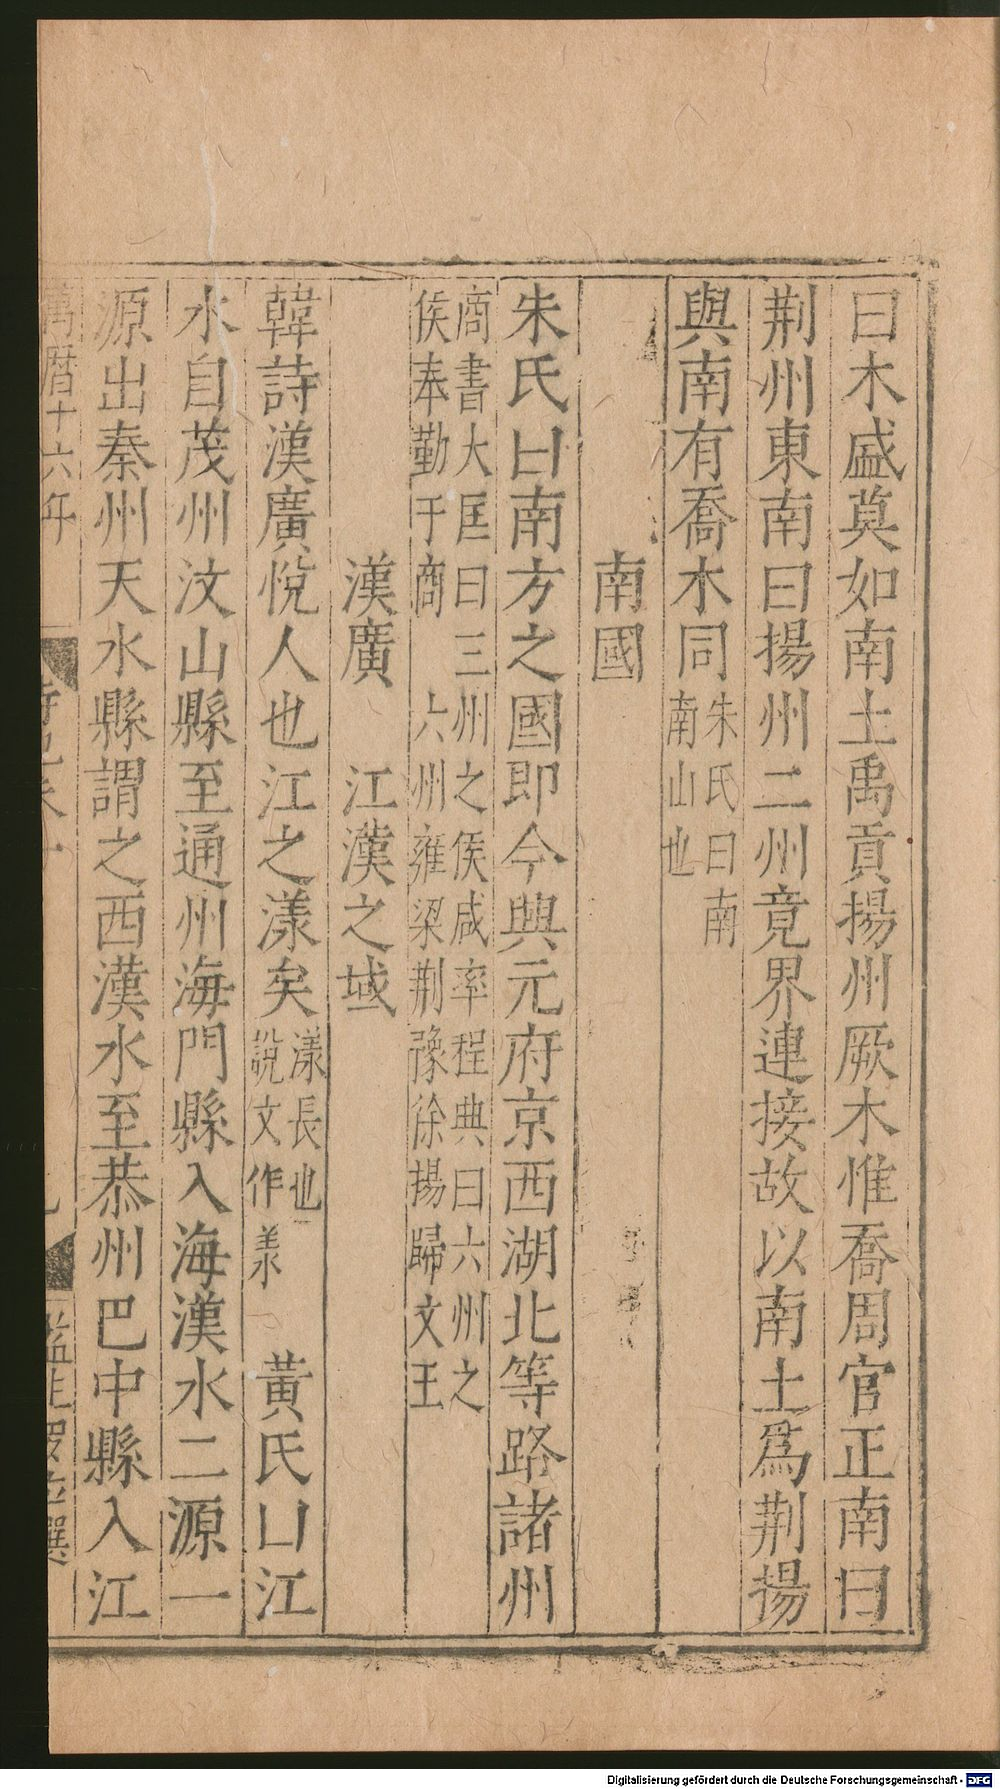 曰木盛莫如南土禹貢揚州厥木惟喬周官正南曰
荆州東南曰揚州二州竟界連接故以南土爲荆揚
與南有喬木同朱氏曰南南山也
南國
朱氏曰南方之國即今興元府京西湖北等路諸州
商書大匡曰三州之侯咸率程典曰六州之
侯奉勤于商 六州雍梁荆豫徐揚歸文王
漢廣 江漢之域
韓詩漢廣悅人也江之漾矣漾長也說文作羕 黃氏曰江
水自茂州汶山縣至通州海門縣入海漢水二源一
源出秦州天水縣謂之西漢水至恭州巴中縣入江
萬曆十六年
Digitalisierung gefördert durch die Deutsche Forschungsgemeinschaft - DFG